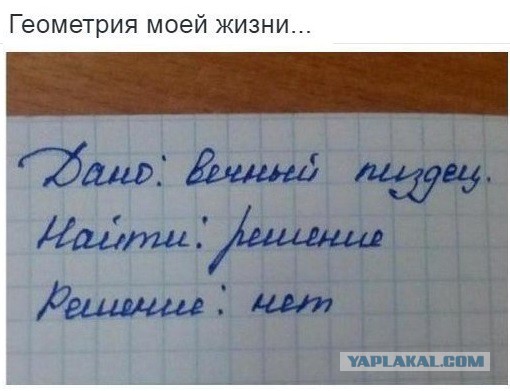 Геометрия моей жизни...
Дано: вечный пиздец.
Найти: решение
Решение: нет
YAPLAKAL.COM